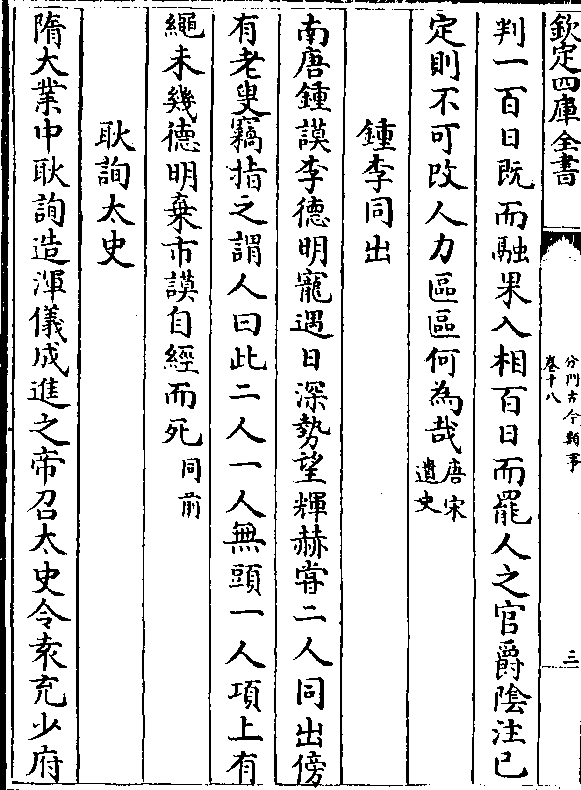 欽定四庫全書
分門古今類事
卷十八
三
判一百日既而融果入相百日而罷人之官爵陰注已
定則不可改人力區區何為哉唐宋
遺史
鍾李同出
南唐鍾謨李德明寵遇日深勢望輝赫嘗二人同出傍
有老叟竊指之謂人曰此二人一人無頭一人項上有
繩未幾德明棄市謨自經而死同前
耿詢太史
隋大業中耿詢造渾儀成進之帝召太史令袁充少府